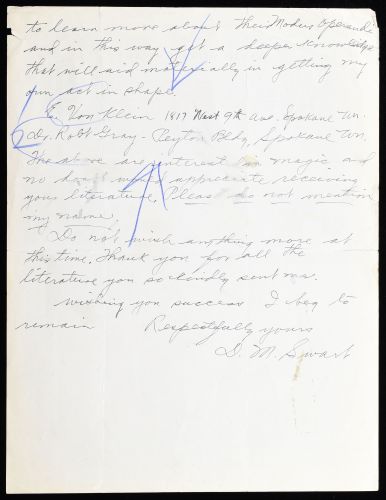 to learn more about their Modus Operandi
and in this way get a deeper knowledge
that will aid materially in getting my
own act in shape.
E. Von Klein 1917 West 9th Ave. Spokane Wn.
Dr. Robt Gray - Peyton Bldg, Spokane Wn.
The above are interest in magic and
no doubt would appreciate receiving
your literature. Pleas do not mention
my name.
Do not wish anything more at
this time. Thank you for all the
literature you so kindly sent me.
wishing you success I beg to
remain Respectfully yours
D. M. Swart